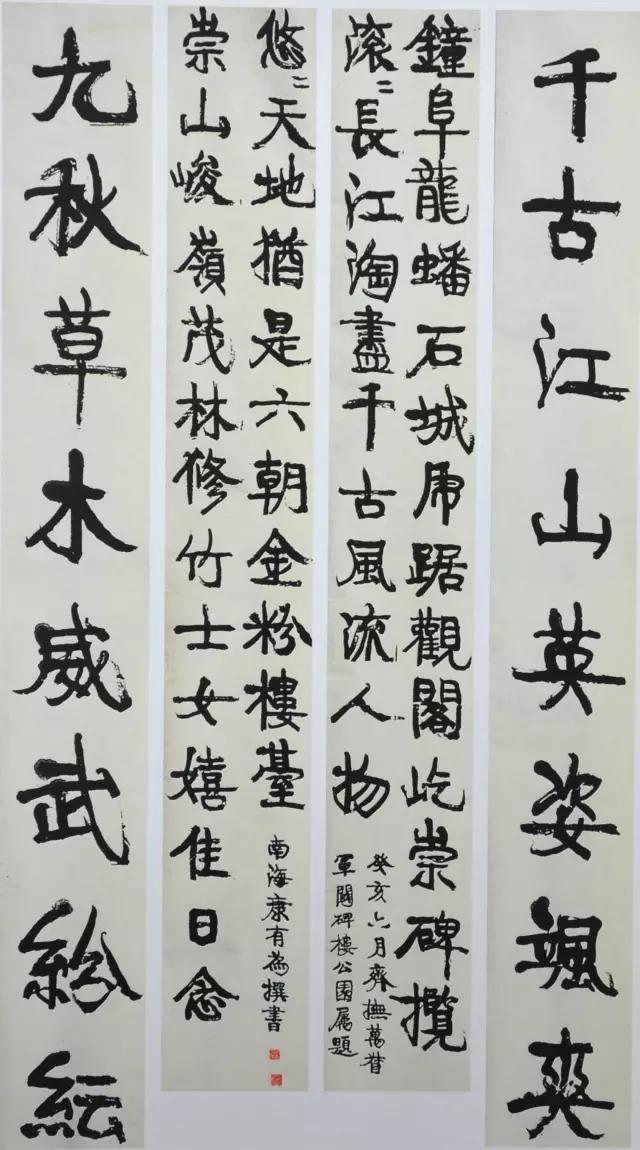 千古江山英姿颯爽
鐘阜龍蟠石城虎踞觀閣屹崇碑攬
滾〻長江淘盡千古風流人物
癸亥六月齊撫萬督
軍閱碑樓公園屬題
崇山峻嶺茂林修竹士女嬉佳日念
悠〻天地猶是六朝金粉樓臺
南海康有為撰書
九秋草木威武紛紜